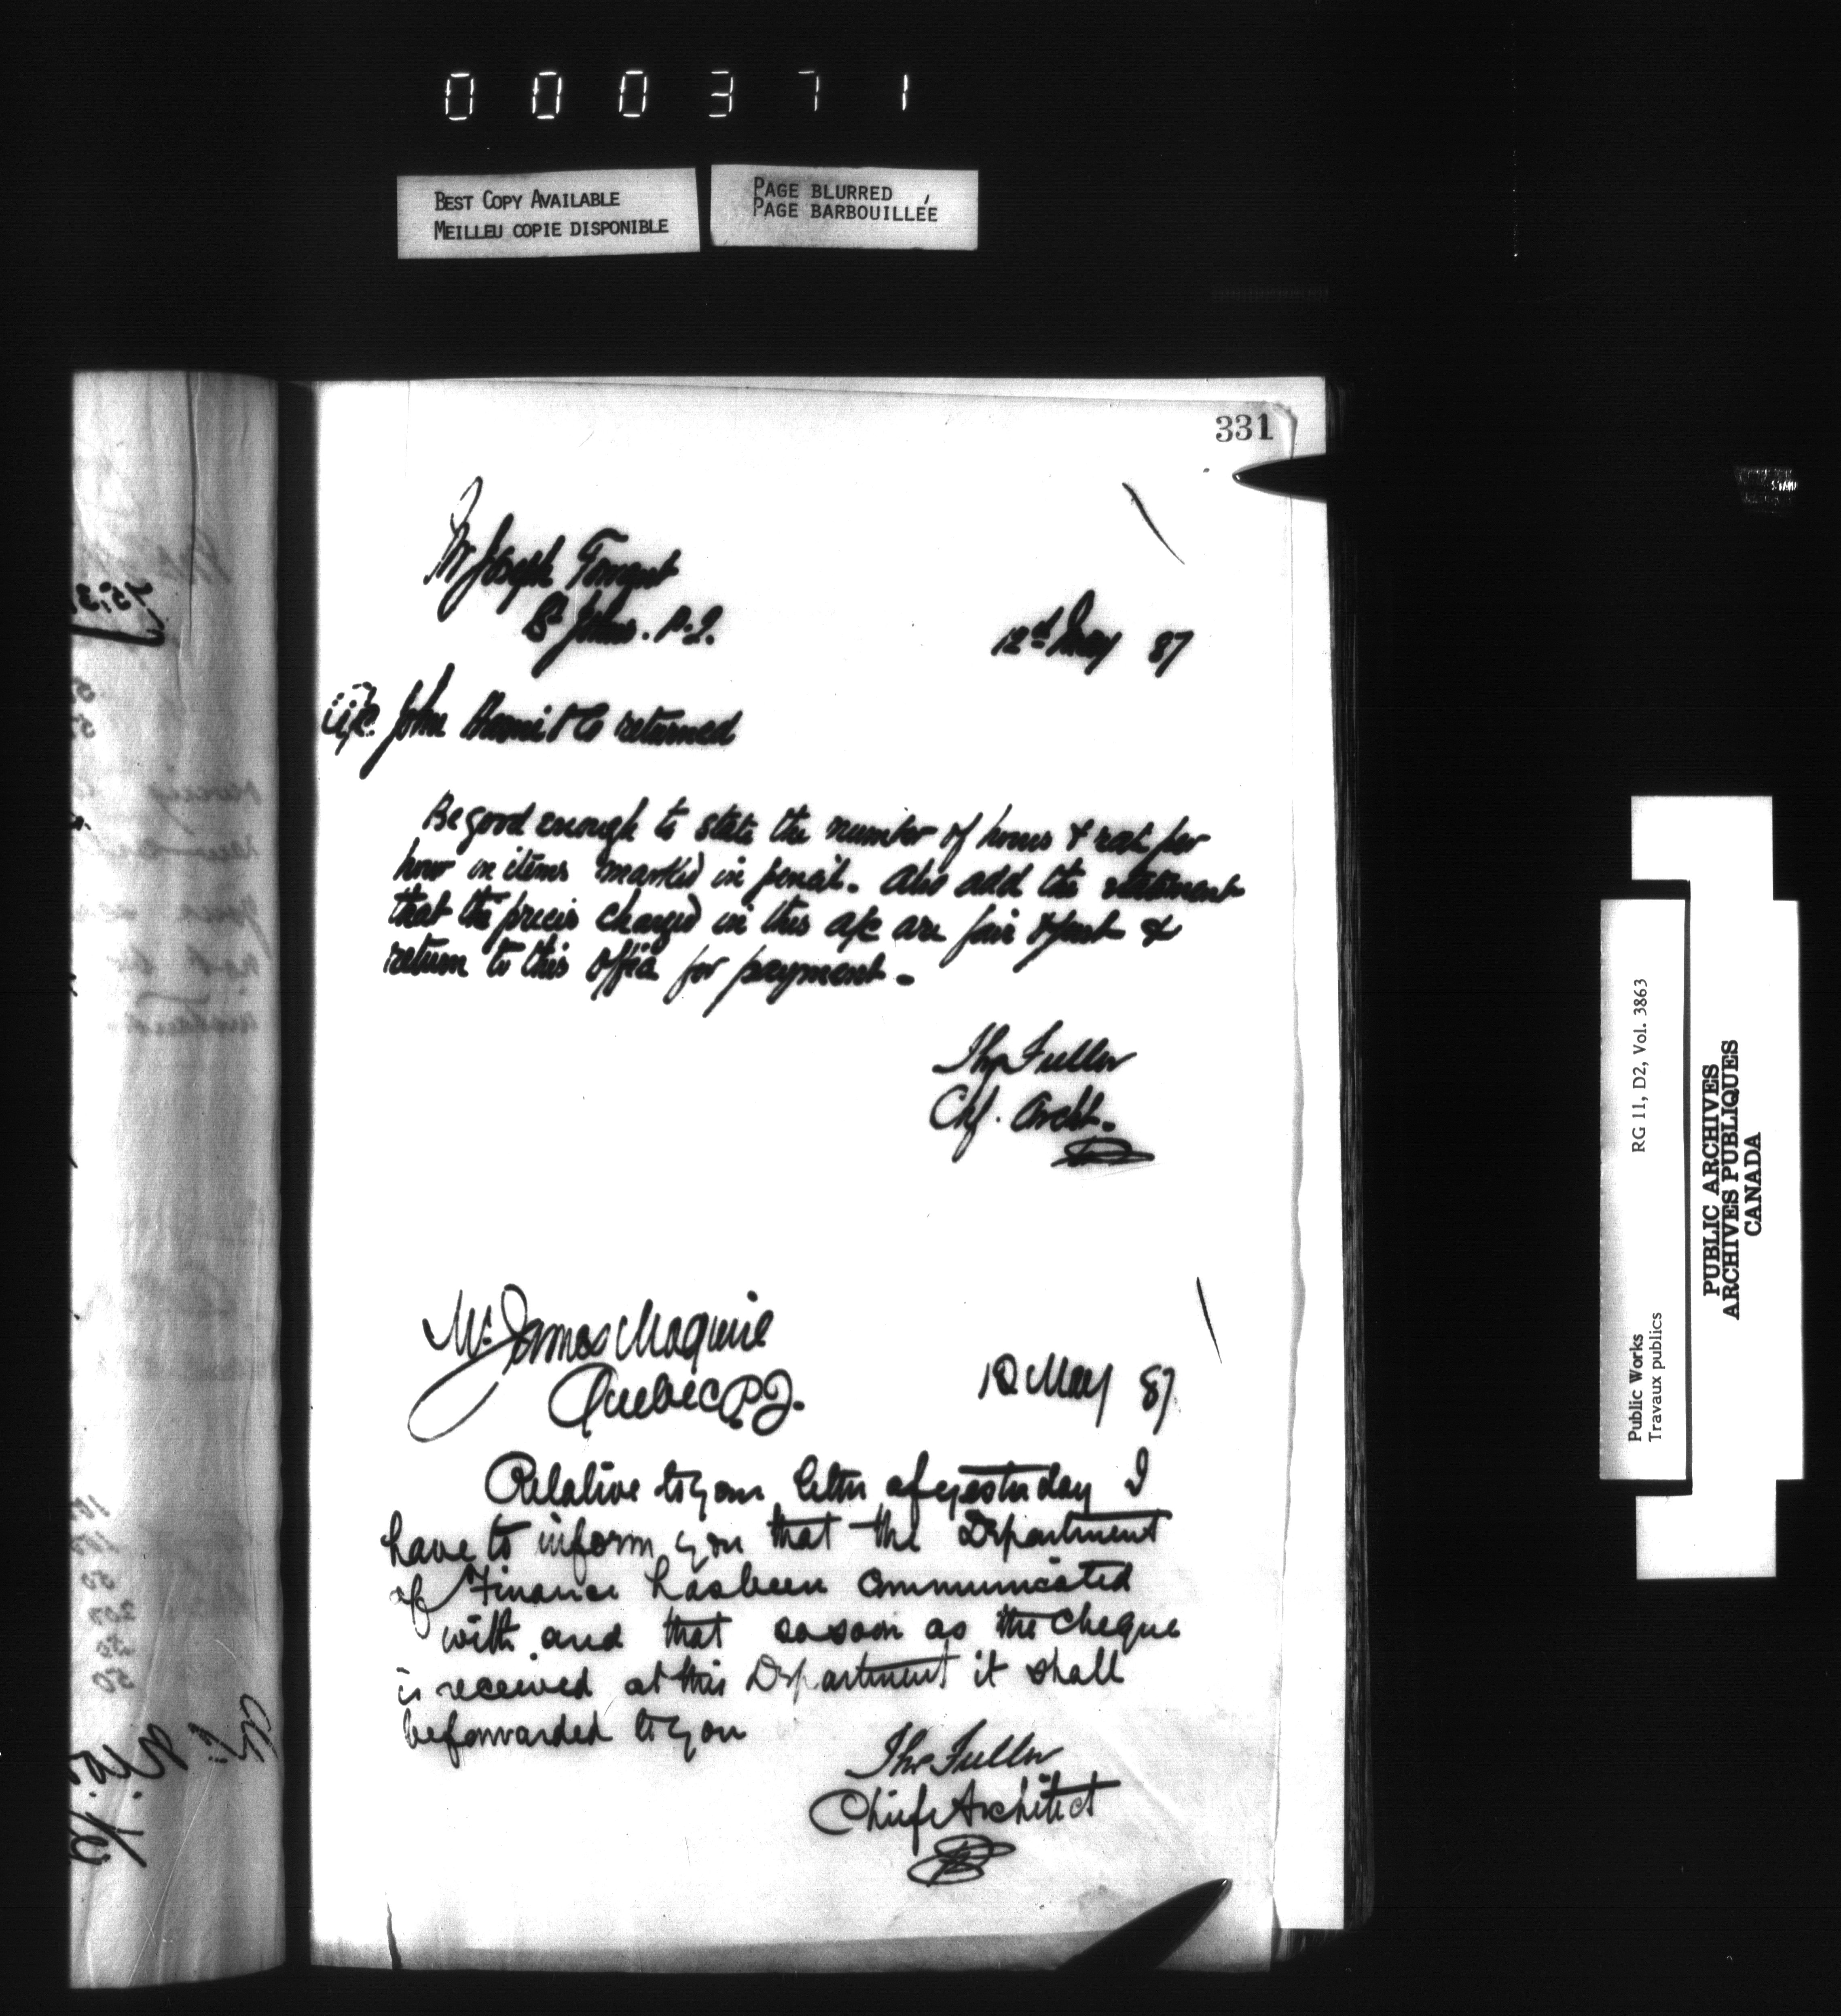 000371
BEST COPY AVAILABLE
MEILLEU COPIE DISPONIBLE
PAGE BLURRED
PAGE BARBOUILLÉE
331
Mr Joseph
St Johns. P.Q.
12th May 87
a/c. John & Co returned
Be good enough to state the number of hours & rate per
hour in items marked in pencil. Also add the statement
that the prices charged in this a/c are fair & just &
return to this office for payment.
Thos Fuller
Chf. Archt.
Mr. James Maguire
Quebec P.Q.
12 May 87.
Relative to your letter of yesterday I
have to inform you that the Department
of Finance has been communicated
with and that so soon as the cheque
is received at this Department it shall
be forwarded to you
Thos Fuller
Chief Architect
Public Works
Travaux publics
RG 11, D2, Vol. 3863
PUBLIC ARCHIVES
ARCHIVES PUBLIQUES
CANADA